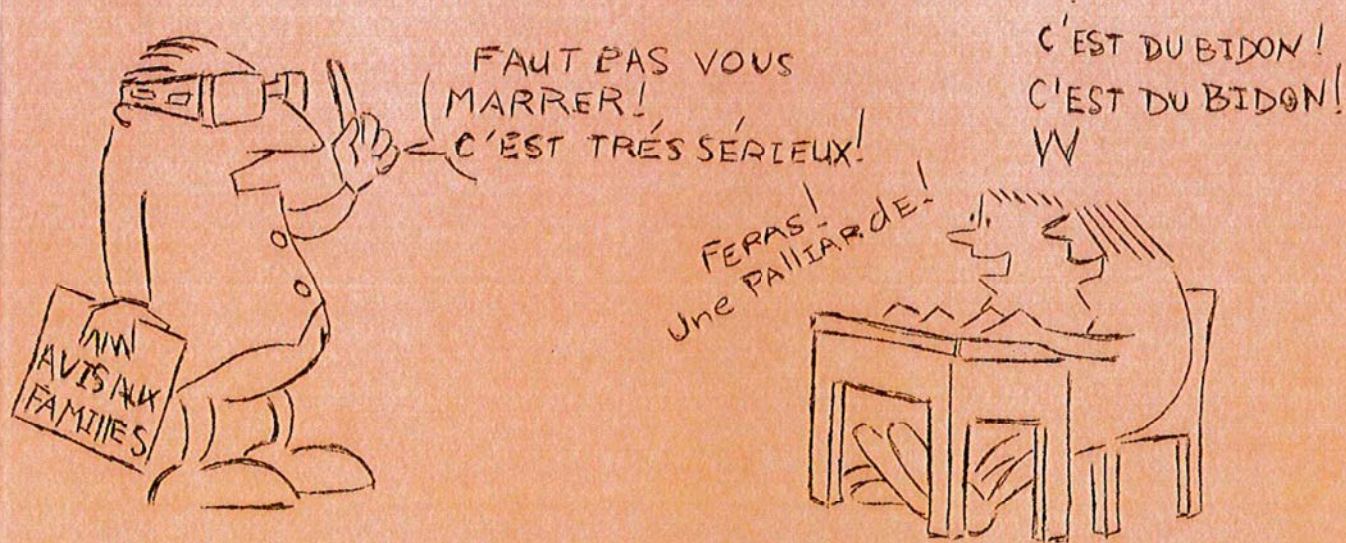 FAUT PAS VOUS
MARRER!
C'EST TRÉS SÉRIEUX!
C'EST DU BIDON!
C'EST DU BIDON!
FERAS!
Une PAllIARdE!
AVIS AUX
FAMIllES